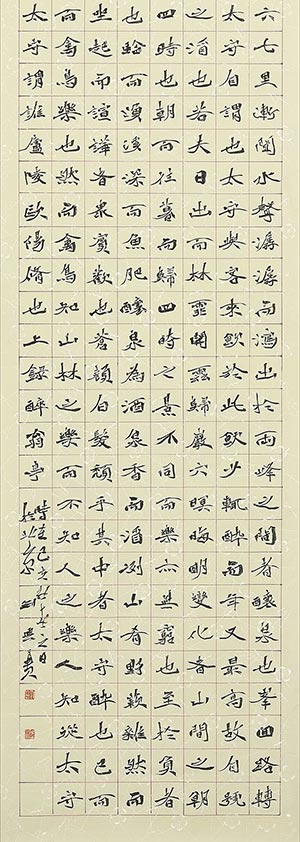 六七里漸聞水聲潺潺而瀉出於兩峰之間者釀泉也峯回路轉
太守自謂也太守與客來飲於此飲少輒醉而年又最高故自號
之滃也若夫日出而林霏開雲歸巖穴暝晦明變化者山間之朝
四時也朝而往暮而歸四時之景不同而樂亦無窮也至於負者
也臨而漁溪深而魚肥釀泉為酒泉香而酒洌山肴野蔌雜然而
坐起而諠譁者衆賓歡也蒼顏白髮頹乎其中者太守醉也已而
而禽鳥樂也然而禽鳥知山林之樂而不知人之樂人知從太守
太守謂誰廬陵歐陽脩也上錄醉翁亭